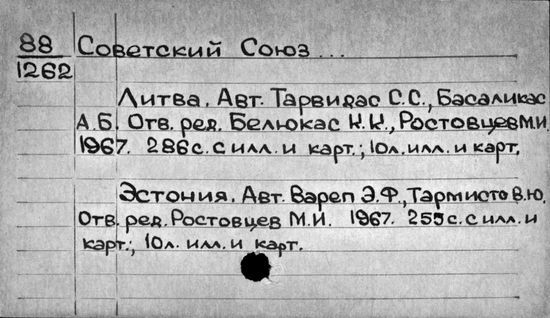 88 Советский Союз...
1262
Литва. Авт. Тарвидас С.С., Басаликас
А.Б. Отв. ред. Белюкас К.К., Ростовцев М.И.
1967. 286 с. с илл. и карт.; 10 л. илл. и карт.
Эстония. Авт. Вареп Э.Ф., Тармисто В.Ю.
Отв. ред. Ростовцев М.И. 1967. 255 с. с илл. и
карт.; 10 л. илл. и карт.